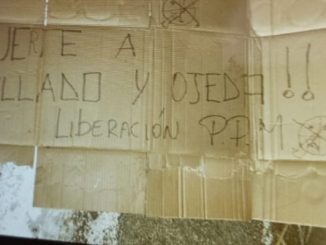 UERTE A
LLADO Y OJEDA!!
LIBERACIÓN P.P.M